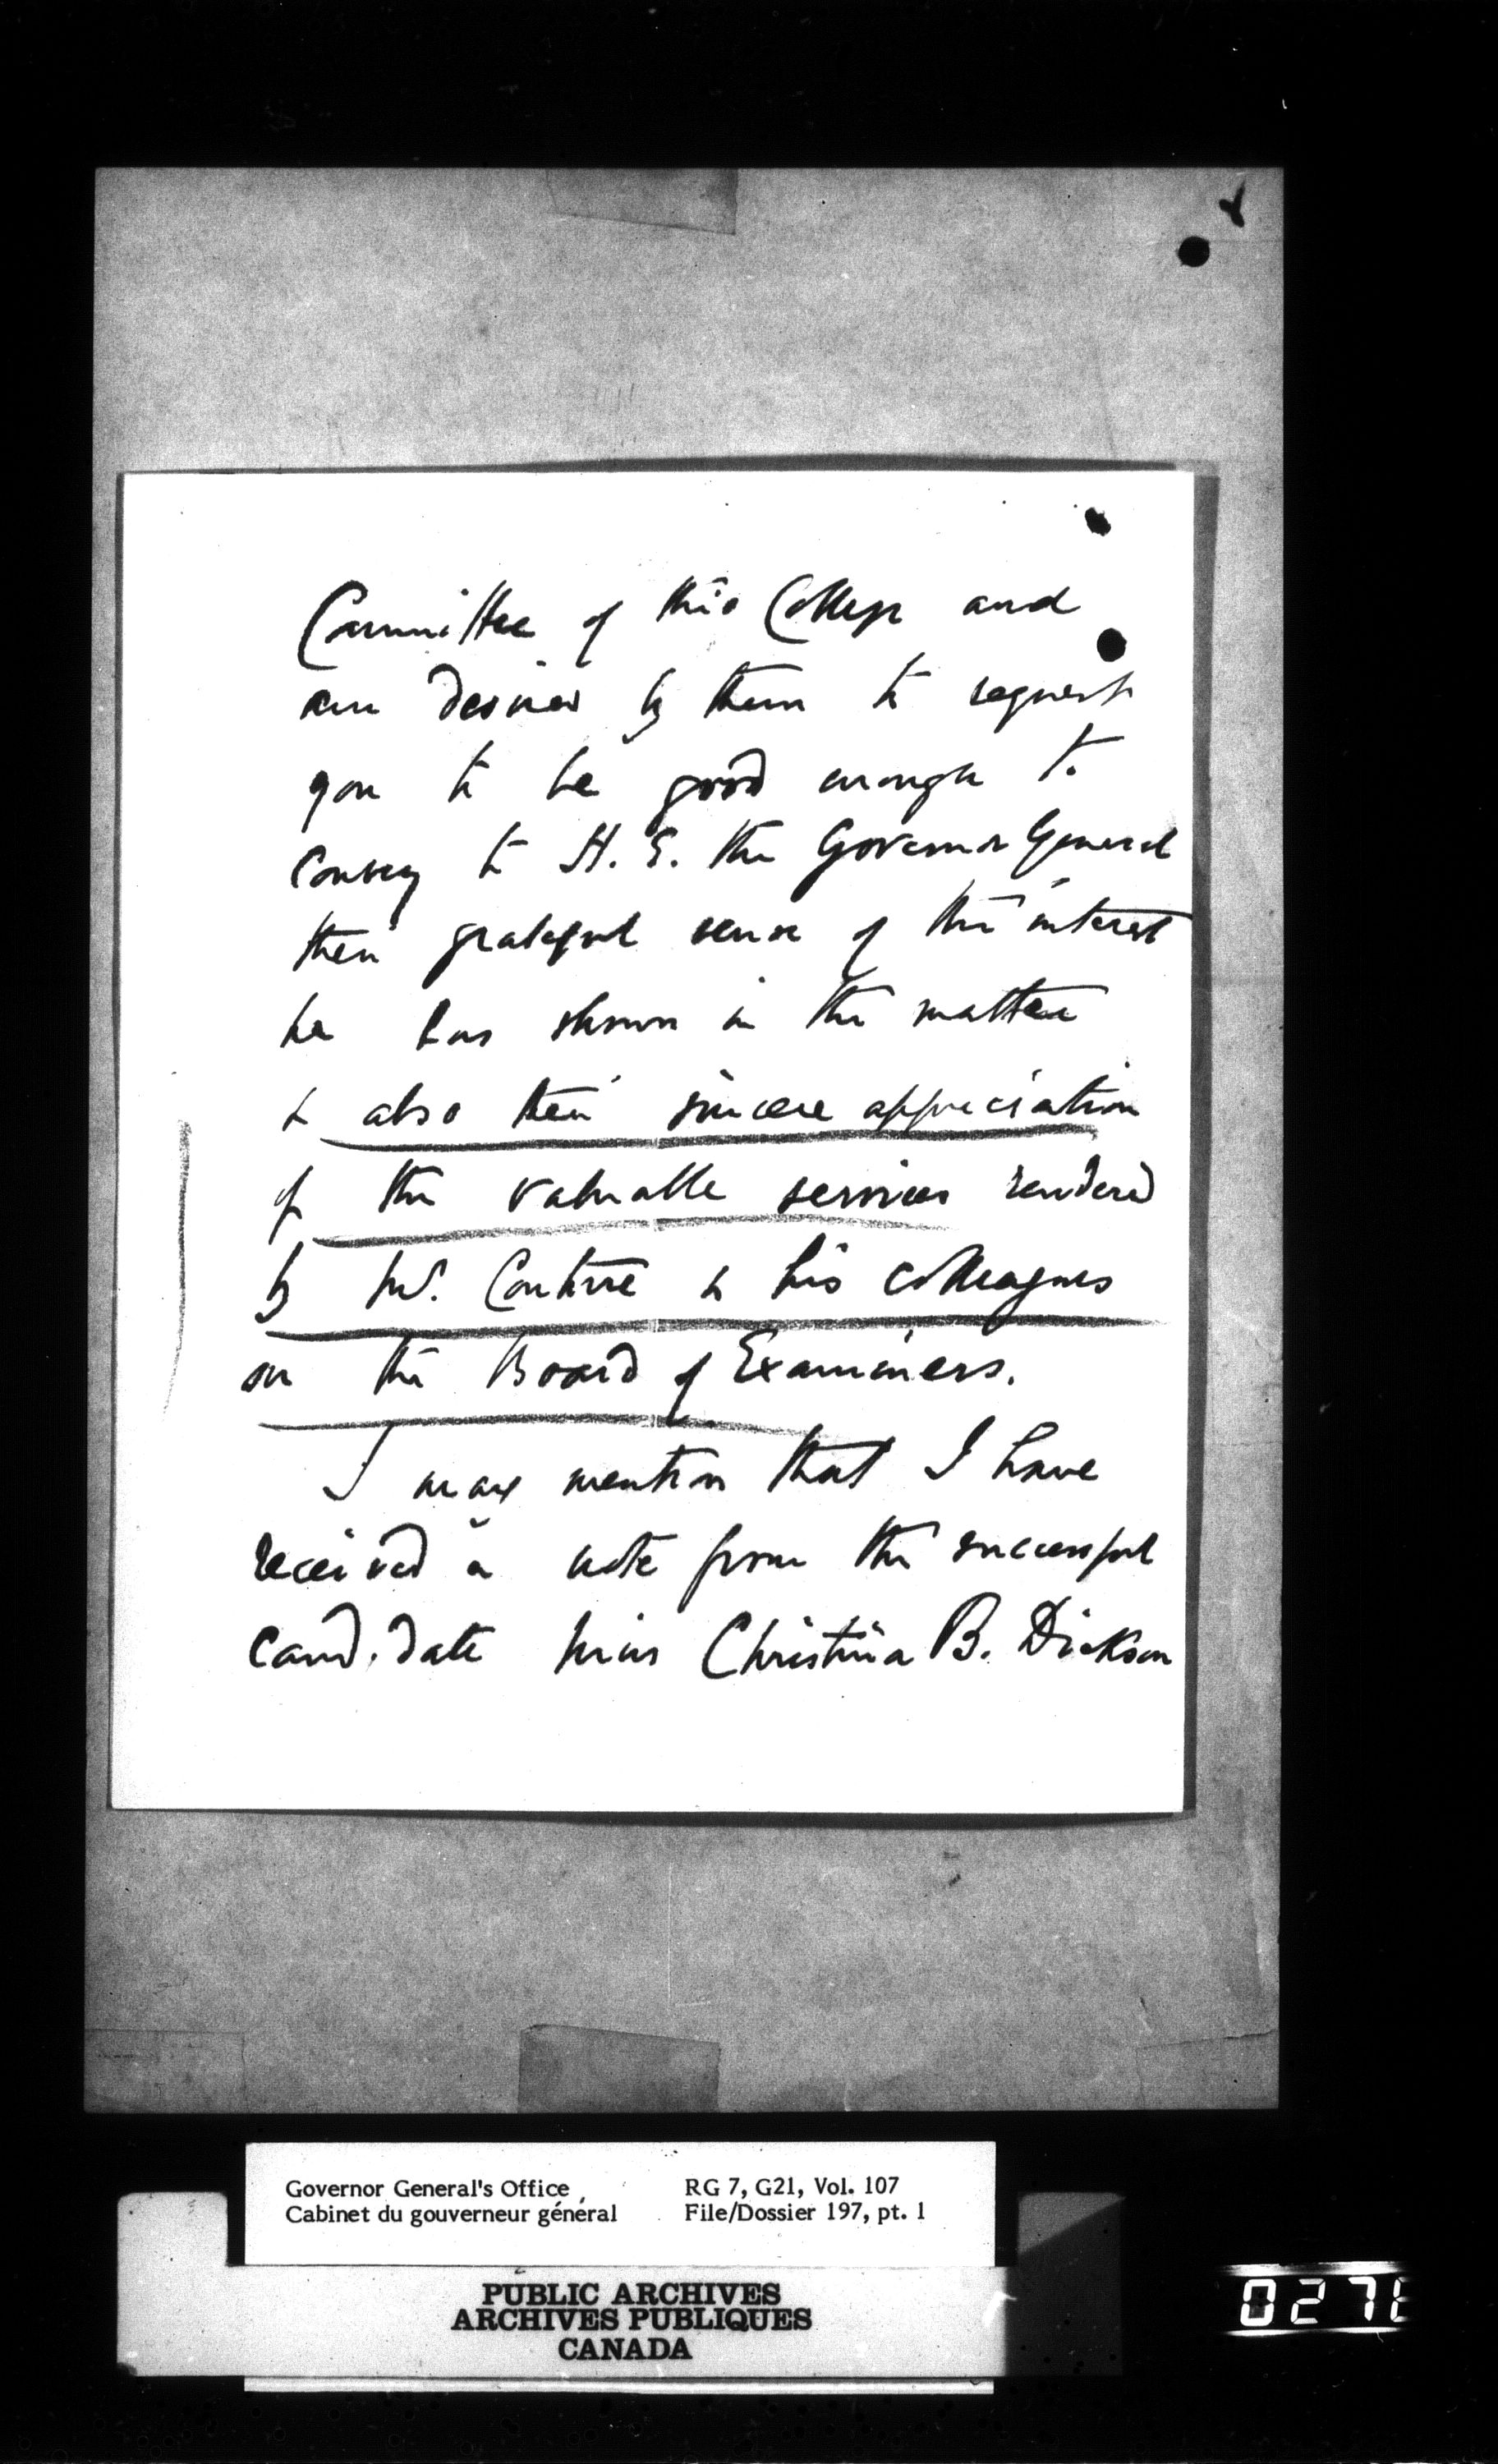 Committee of this College and
am desired by them to request
you to be good enough to
convey to H. E. the Governor General
their grateful sense of the interest
he has shown in the matter
& also their sincere appreciation
of the valuable services rendered
by Mr. Couture & his colleagues
on the Board of Examiners.
I may mention that I have
received a note from the successful
candidate Miss Christina B. Dickson
Governor General's Office RG 7, G21, Vol. 107
Cabinet du gouverneur général File/Dossier 197, pt. 1
PUBLIC ARCHIVES
ARCHIVES PUBLIQUES
CANADA